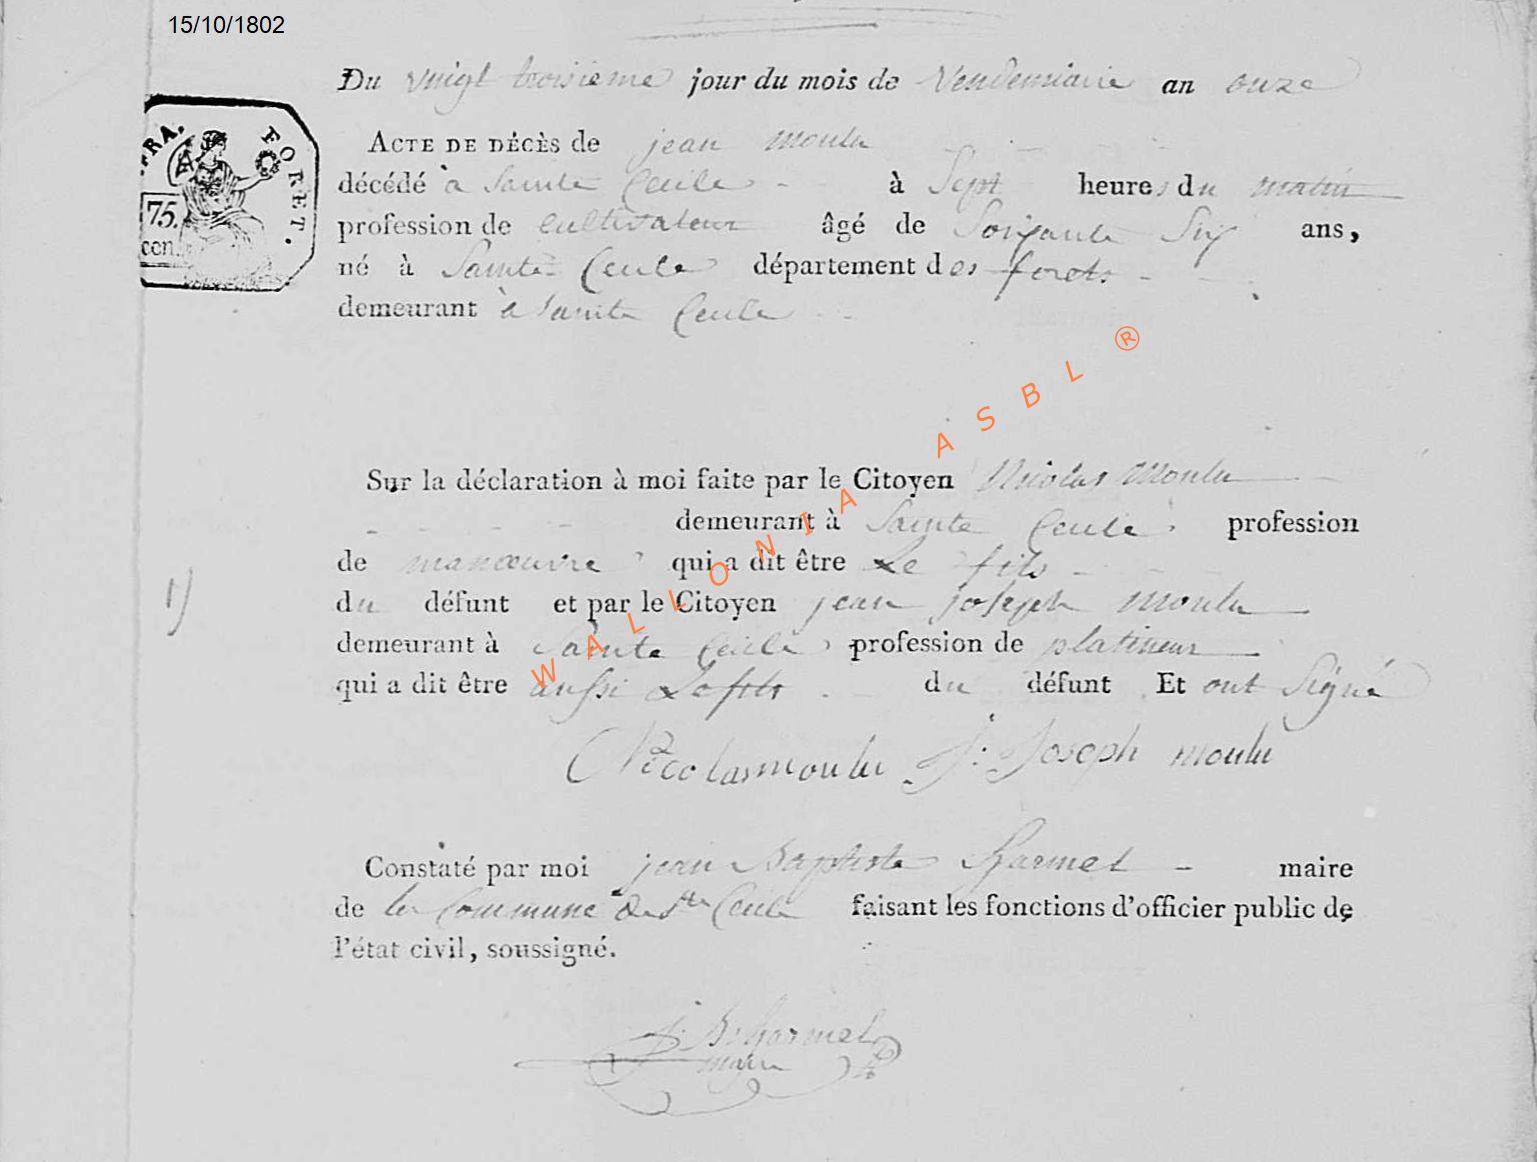 15/10/1802
Du vingt troisieme jour du mois de Vendemiaire an onze
FRA. FORET.
75.
cen.
ACTE DE DÉCÈS de jean moulu
décédé à Sainte Cecile - à Sept heures du matin
profession de cultivateur âgé de Soixante Six ans,
né à Sainte Cecile département des forets - -
demeurant à Sainte Cecile - -
Sur la déclaration à moi faite par le Citoyen Nicolas Moulu
demeurant à Sainte Cecile profession
de manœuvre qui a dit être Le fils
1)
du défunt et par le Citoyen jean joseph moulu
demeurant à Sainte Cecile profession de platineur
qui a dit être aussi Le fils du défunt Et ont Signé
Nicolas moulu J: Joseph moulu
Constaté par moi jean Baptiste - maire
de la Commune de Ste Cecile faisant les fonctions d'officier public de
l'état civil, soussigné.
maire
WALLONIA ASBL ®